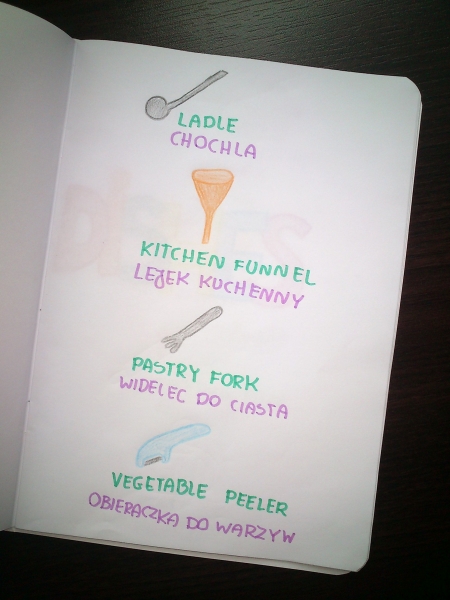 LADLE
CHOCHLA
KITCHEN FUNNEL
LEJEK KUCHENNY
PASTRY FORK
WIDELEC DO CIASTA
VEGETABLE PEELER
OBIERACZKA DO WARZYW